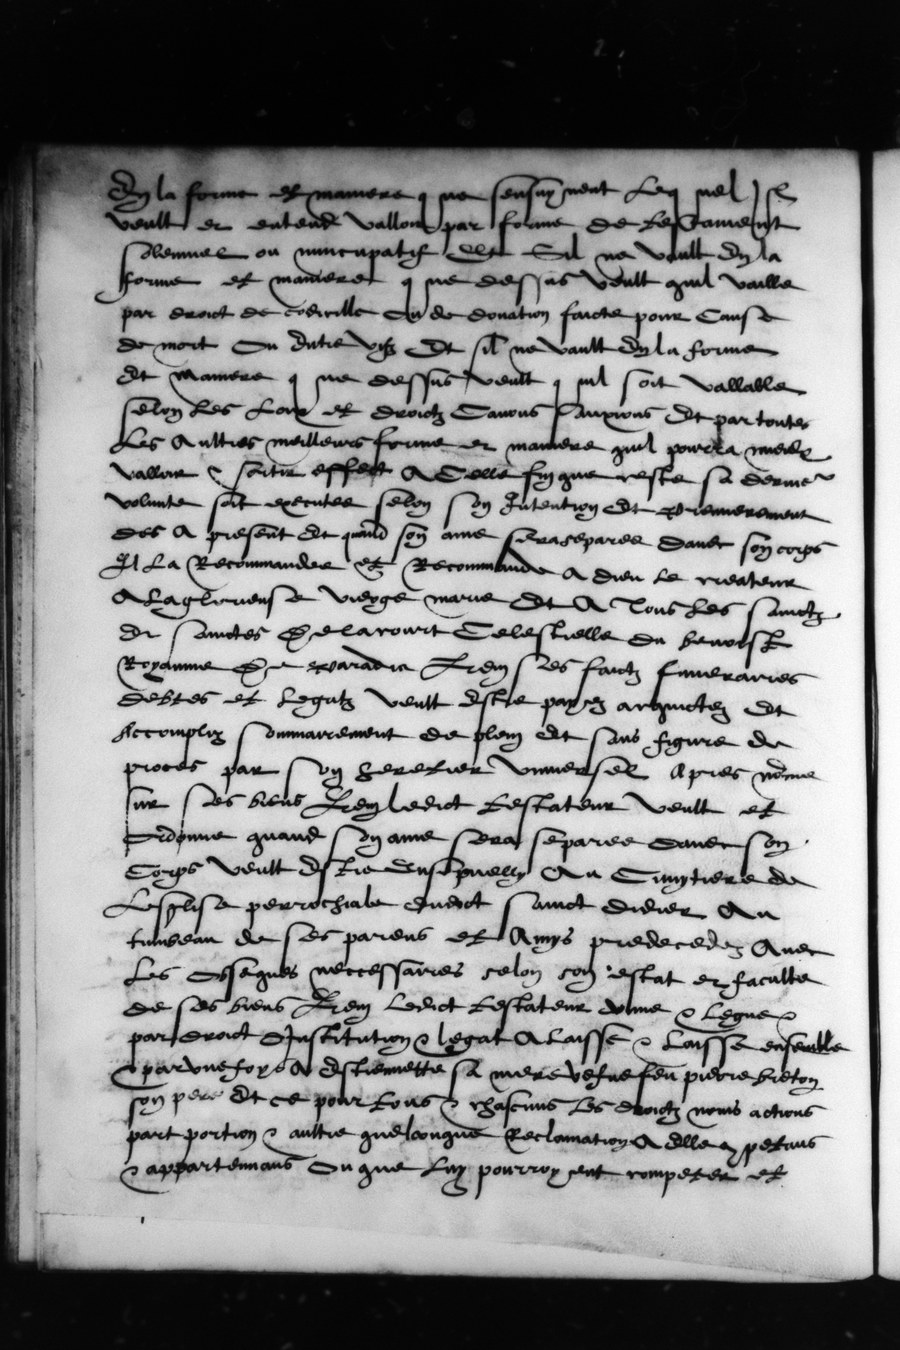 En la forme et maniere q ne sensuyvent Leq nel Il
veult et entend valloir par forme de testament
solemnel ou nuncupatif Et Sil ne vault En la
forme et maniere q ne dessus veult quil vaille
par droict de codicille Ou de donation faicte pour Cause
de mort Ou Entre vifz Et sil ne vault En la forme
Et maniere q ne dessus veult q uil soit vallable
selon les Loix et droictz Canons Et par toutes
Les Aultres meilleurs forme et maniere quil pourra mieulx
valloir & sortir effect A Celle fin que reste sa derniere
volunte soit executee selon son Intention Et Premierement
des A present Et quand son ame sera separee davec son corps
Il La Recommandee et Recommande A dieu le createur
A la glorieuse vierge marie Et A Tous les sainctz
Et sainctes De la court Celestielle du benoist
Royaume De paradis Item ses faictz funeraires
debtes et legatz veult Estre payez acquictez Et
Accomplis sommairement de plein Et sans figure de
proces par son heretier universel Apres nomme
sur ses biens Item ledict testateur veult et
Ordonne quand son ame sera separee davec son
Corps veult Estre Ensepvelly Au Cimytiere de
Lesglise perrochiale dudict sainct didier Au
tumbeau de ses parens et Amys predecedez Avec
Les Obseques neccessaires celon son estat et faculte
de ses biens Item Ledict testateur donne & legue &
par droict dInstitution & legat A laisse & Laisse ensemble
& par une foys A Estiennette sa mere vefve feu pierre breton
son pere Et ce pour tous & chascuns les droictz noms actions
part portion & aultre quelconque Reclamation A Elle competans
& appartenans Ou que luy pourroyent competer et